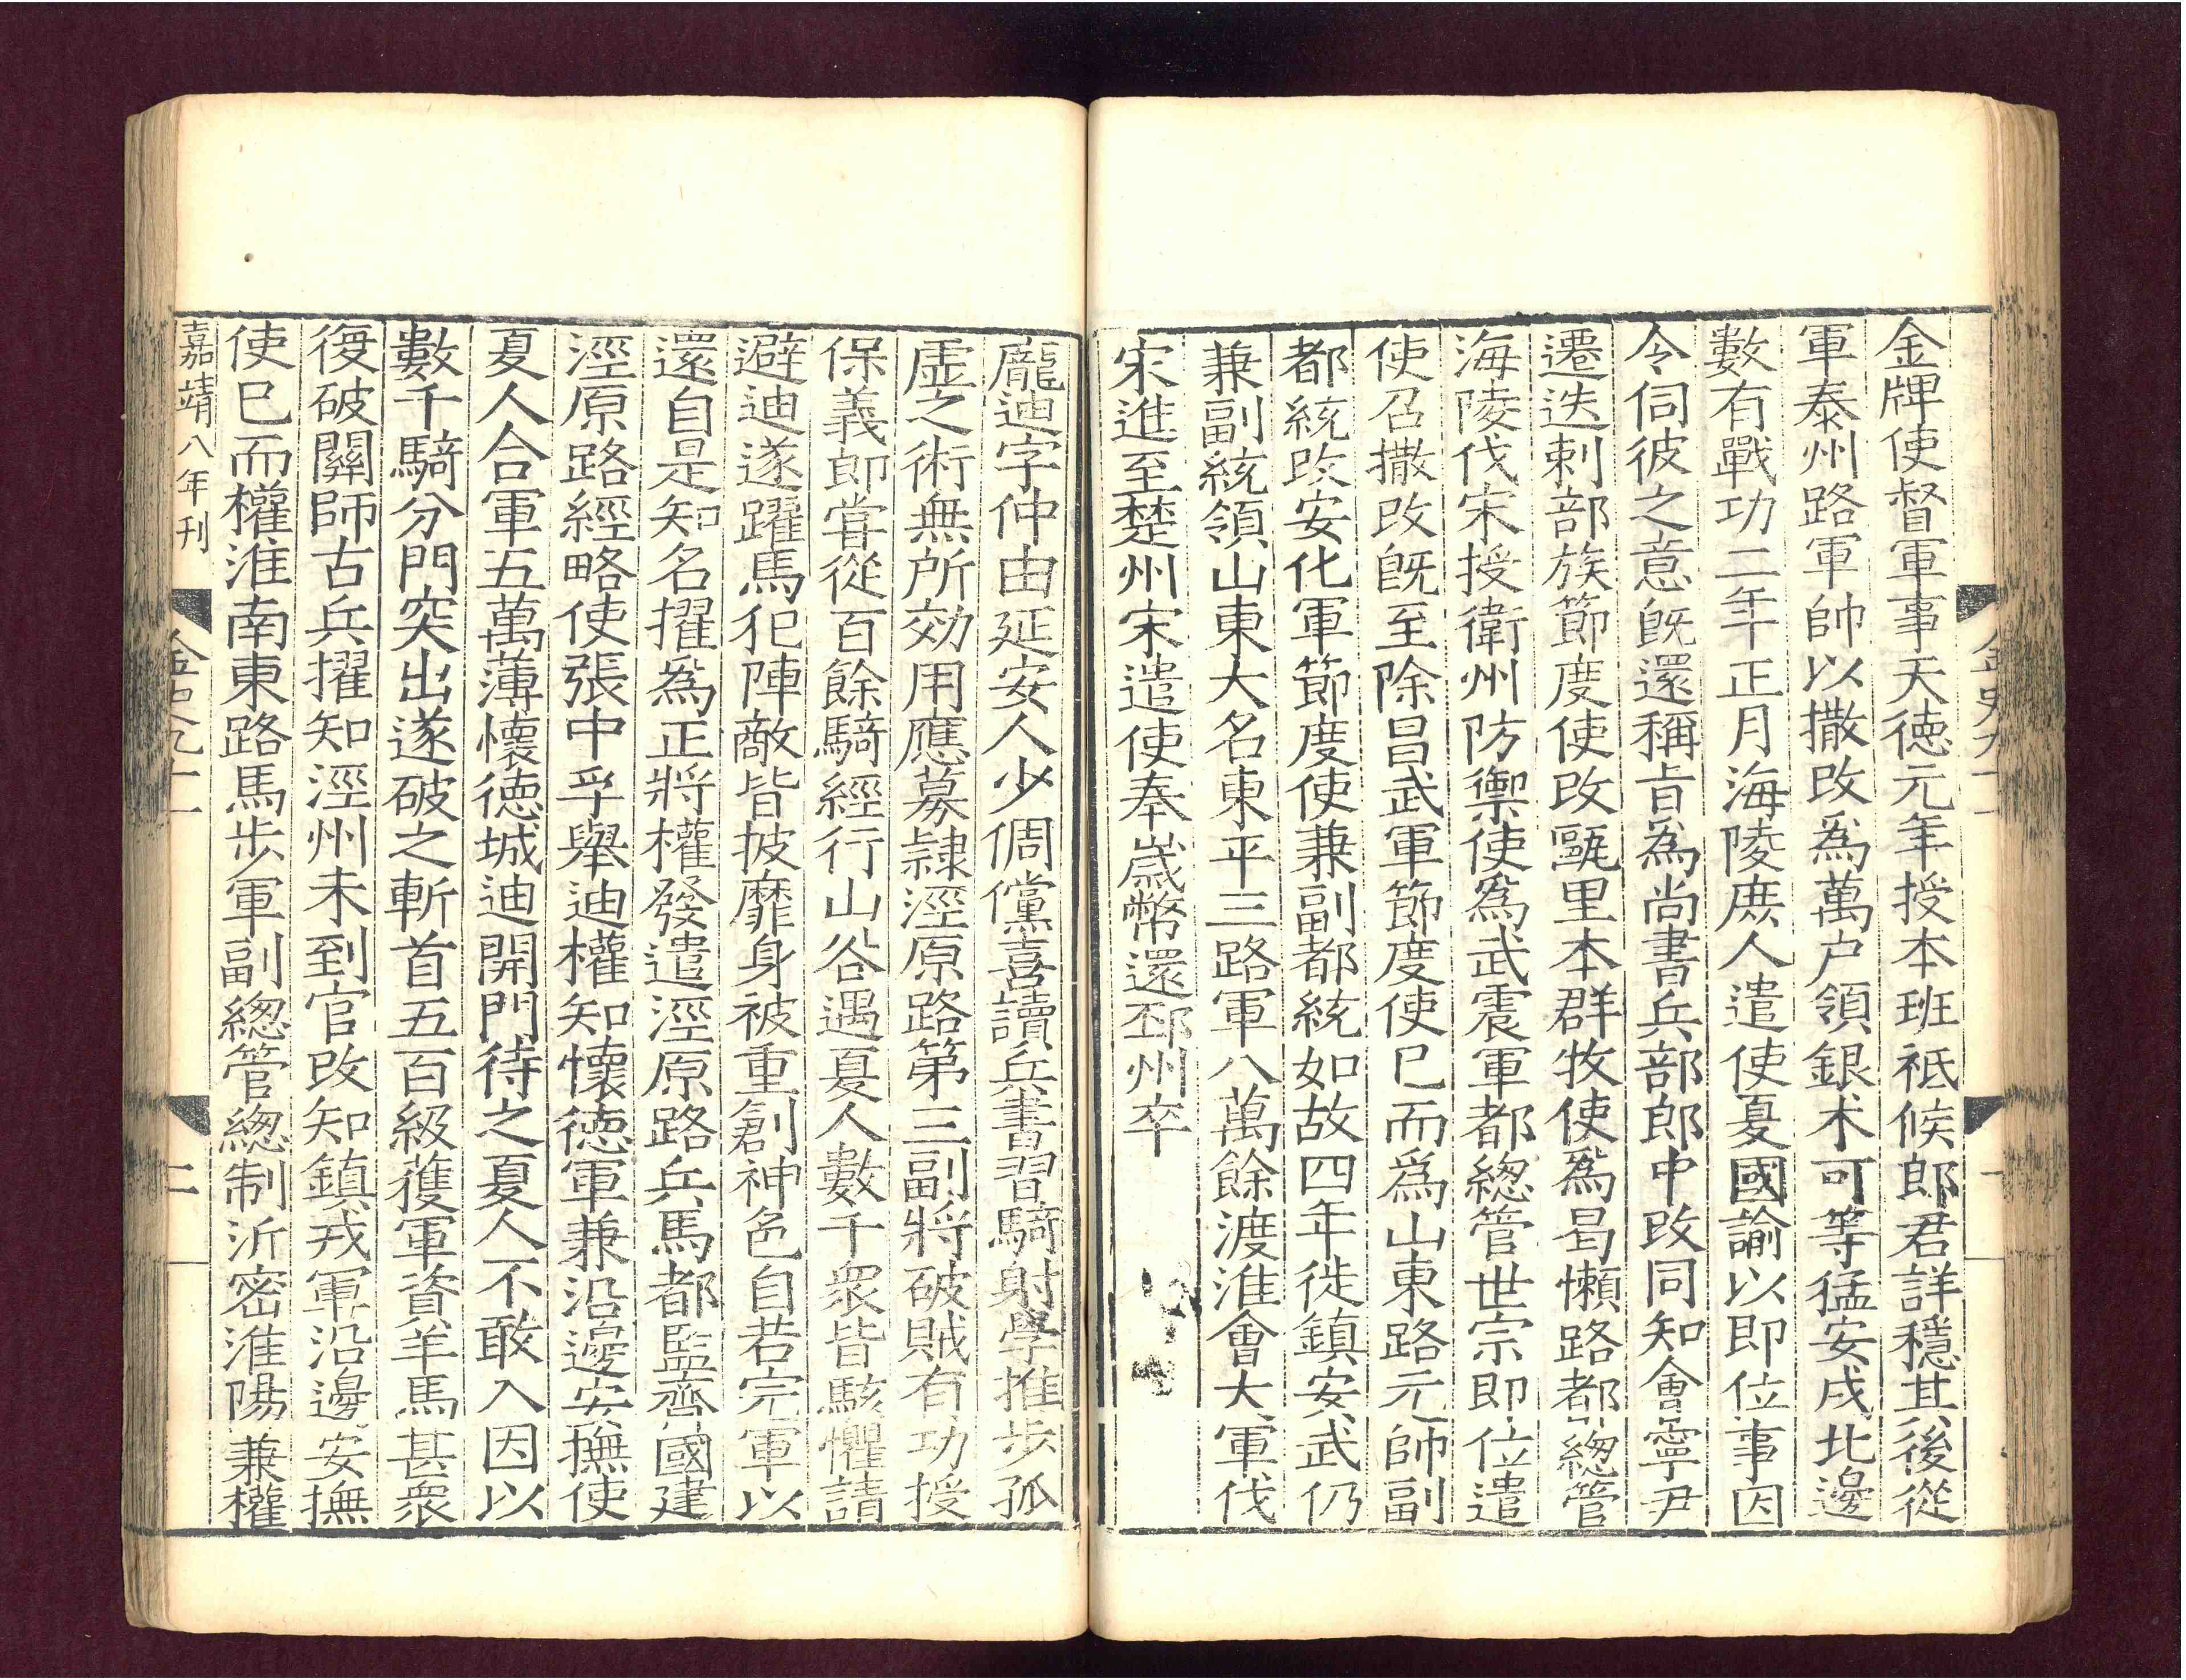 金牌使督軍事天德元年授本班祗候郎君詳穩其後從
軍泰州路軍帥以撒改爲萬户領銀术可等猛安戍北邊
數有戰功二年正月海陵庶人遣使夏國諭以即位事因
令伺彼之意旣還稱旨爲尚書兵部郎中改同知會寧尹
遷迭剌部族節度使改甌里本群牧使爲曷懶路都緫管
海陵伐宋授衛州防禦使爲武震軍都緫管世宗即位遣
使召撒改旣至除昌武軍節度使已而爲山東路元帥副
都統改安化軍節度使兼副都統如故四年徙鎮安武仍
兼副統領山東大名東平三路軍八萬餘渡淮會大軍伐
宋進至楚州宋遣使奉歲幣還邳州卒
龐迪字仲由延安人少倜儻喜讀兵書習騎射學推步孤
虛之術無所効用應募隷涇原路第三副將破賊有功授
保義郎嘗從百餘騎經行山谷遇夏人數千衆皆駭懼請
避迪遂躍馬犯陣敵皆披靡身被重創神色自若完軍以
還自是知名擢爲正將權發遣涇原路兵馬都監齊國建
涇原路經略使張中孚舉迪權知懷德軍兼沿邊安撫使
夏人合軍五萬薄懷德城迪開門待之夏人不敢入因以
數千騎分門突出遂破之斬首五百級獲軍資羊馬甚衆
復破關師古兵擢知涇州未到官改知鎮戎軍沿邊安撫
使已而權淮南東路馬步軍副緫管緫制沂密淮陽兼權
嘉靖八年刊
金史九十一
二